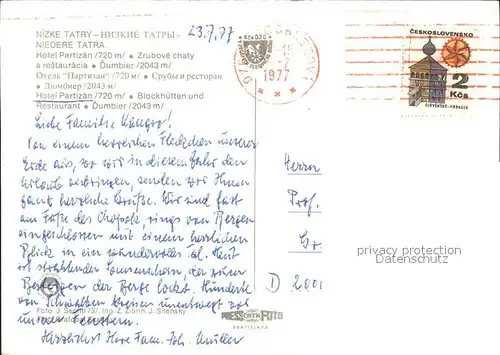 23.7.77
NÍZKE TATRY – НИЗКИЕ ТАТРЫ
NIEDERE TATRA
Hotel Partizán /720 m/ • Zrubové chaty
a reštaurácia • Ďumbier /2043 m/
Отель "Партизан" /720 м/ • Срубы и ресторан
• Дюмбиер /2043 м/
Hotel Partizán /720 m/ • Blockhütten und
Restaurant • Ďumbier /2043 m/
Liebe Familie
Von einem herrlichen Fleckchen unserer
Erde aus, wo wir in diesem Jahr den
Urlaub verbringen, senden wir Ihnen
ganz herzliche Grüße. Wir sind fast
am Fuße des Chopok, rings von Bergen
eingeschlossen mit einem herrlichen
Blick in ein wundervolles Tal. Heut
ist strahlender Sonnenschein, der zum
Besteigen der Berge lockt. Hunderte
von Schwalben kreisen unentwegt vor
unseren Fenstern.
Herzlichst Ihre Fam. Joh. Müller
Foto: J. Ing. Z. J. Sitenský
PRESSFOTO
BRATISLAVA
1977
ČESKOSLOVENSKO
2
Kčs
SLOVENSKO-HRONSEK
Herrn
Prof.
Gr
D 2001
privacy protection
Datenschutz